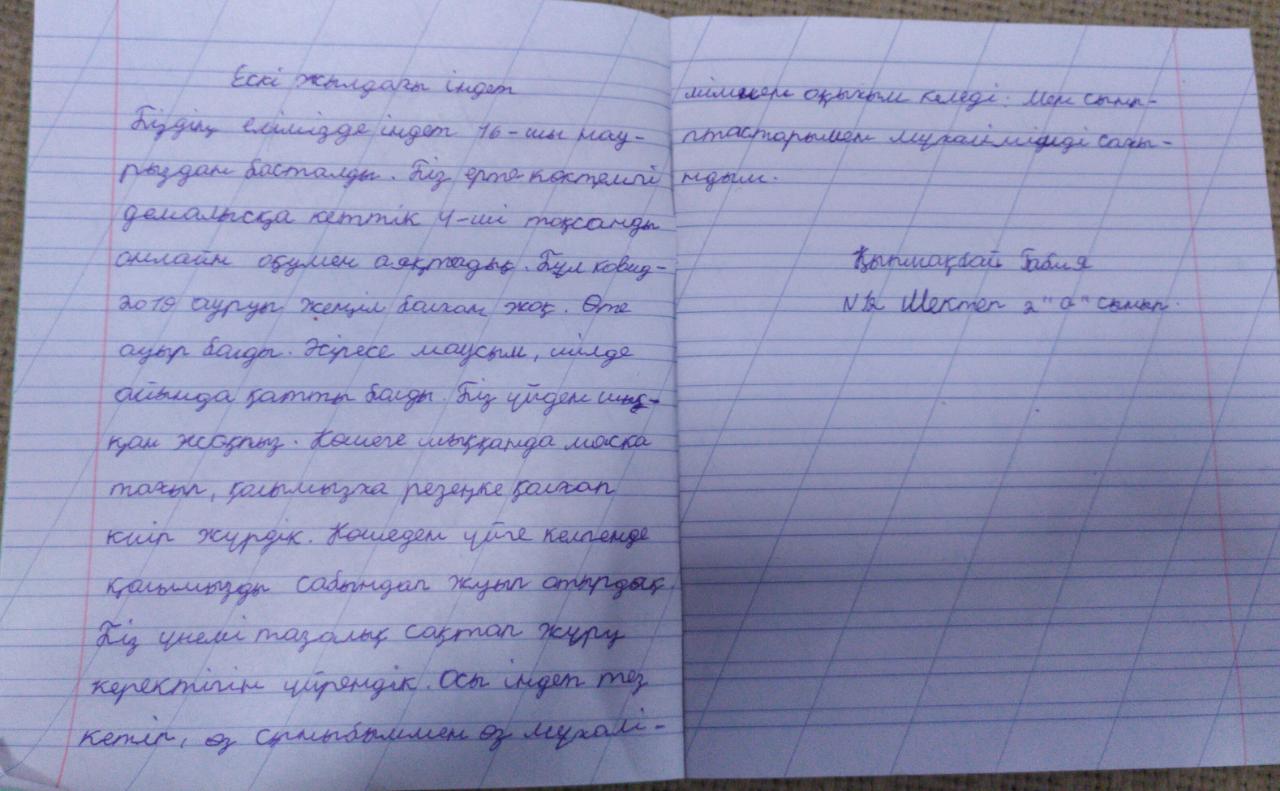 Ескі жылдағы індет
Біздің елімізде індет 16-шы нау-
рыздан басталды. Біз ерте көктемгі
демалысқа кеттік 4-ші тоқсанды
онлайн оқумен аяқтадық. Бұл ковид-
2019 ауруы жеңіл болған жоқ. Өте
ауыр болды. Әсіресе маусым, шілде
айында қатты болды. Біз үйден шық-
қан жоқпыз. Көшеге шыққанда маска
тағып, қолымызға резеңке қолғап
киіп жүрдік. Көшеден үйге келгенде
қолымызды сабындап жуып отырдық.
Біз үнемі тазалық сақтап жүру
керектігін үйрендік. Осы індет тез
кетіп, өз сыныбыммен өз мұғалі-
міммен оқығым келеді. Мен сынып-
птастарыммен мұғалімімізді сағы-
ндым.
Қыпшақбай Ғабия
№2 Мектеп 2 "а" сынып.